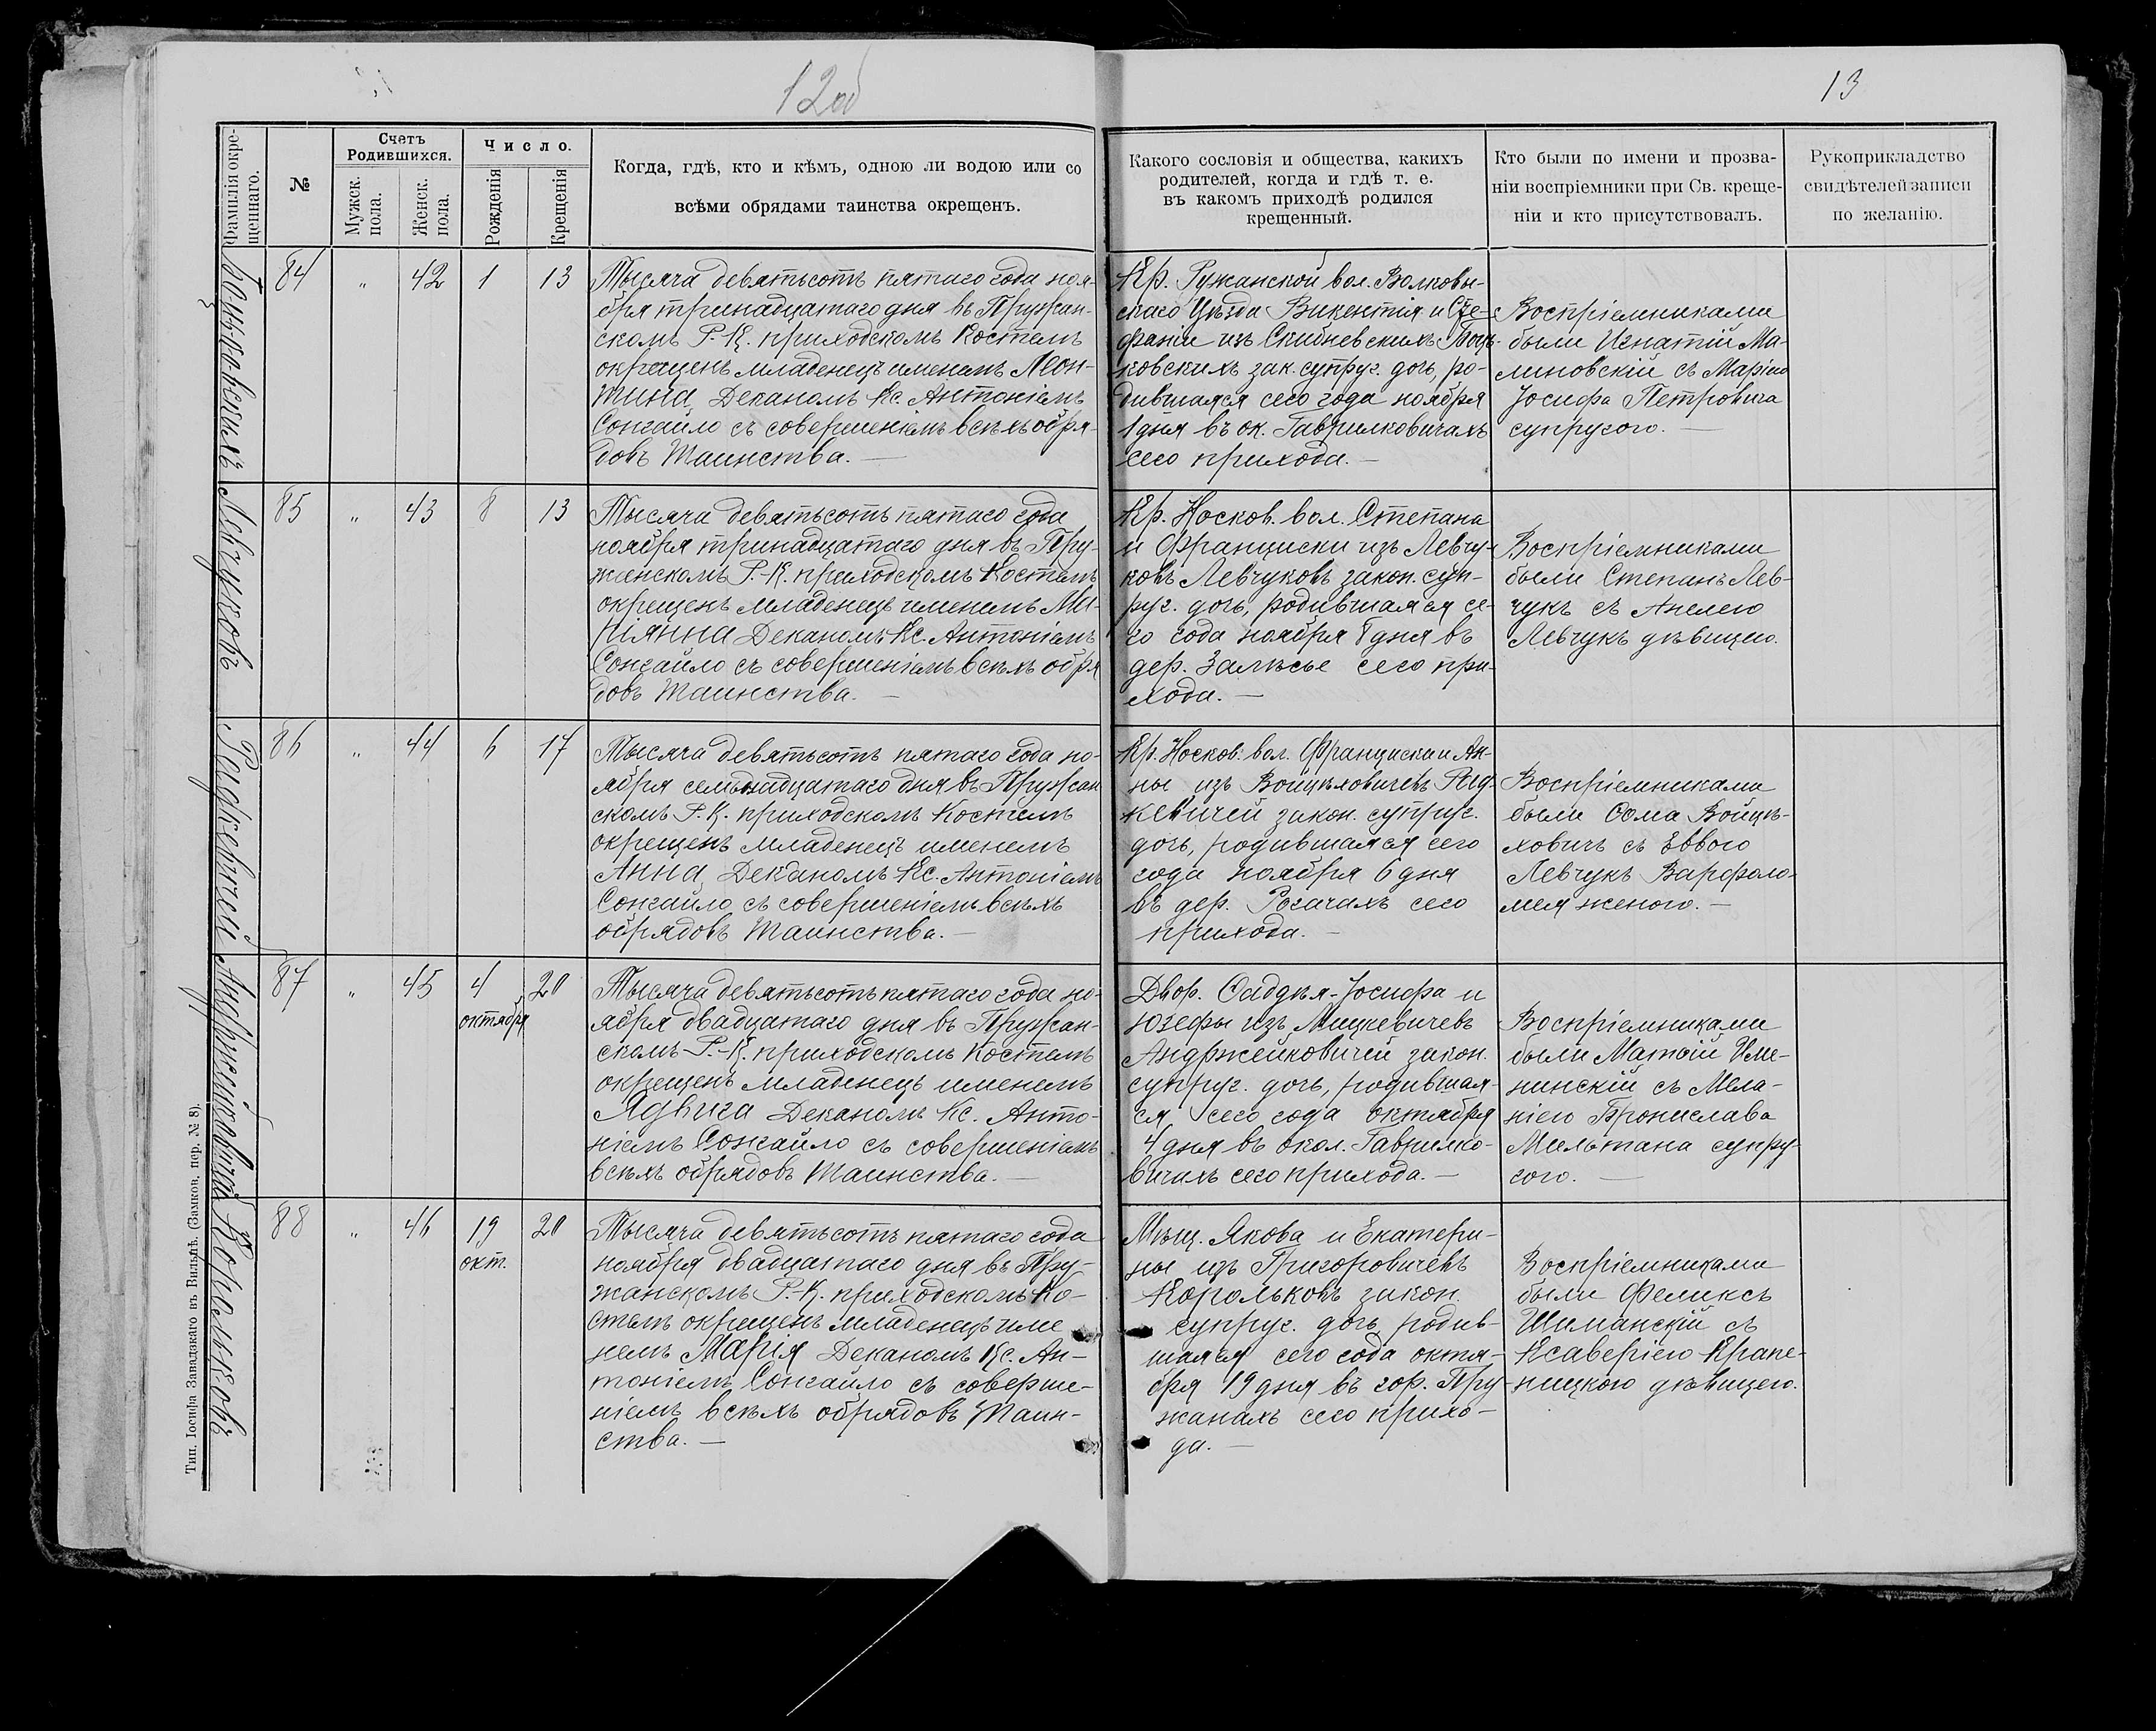 12об
13
Фамилія окре-
щеннаго.
№
Счетъ
Родившихся.
Мужск.
пола.
Женск.
пола.
Число.
Рожденія
Крещенія
Когда, гдѣ, кто и кѣмъ, одною ли водою или со
всѣми обрядами таинства окрещенъ.
Какого сословія и общества, какихъ
родителей, когда и гдѣ т. е.
въ какомъ приходѣ родился
крещенный.
Кто были по имени и прозва-
ніи воспріемники при Св. креще-
ніи и кто присутствовалъ.
Рукоприкладство
свидѣтелей записи
по желанію.
84 „ 42 1 13
Тысяча девятьсотъ пятаго года ноя-
бря тринадцатаго дня въ Пружан-
скомъ Р.-К. приходскомъ Костелѣ
окрещенъ младенецъ именемъ Леон-
тина Деканомъ Кс. Антоніемъ
Сонгайло съ совершеніемъ всѣхъ обря-
довъ Таинства. —
Кр. Ружанской вол. Волковы-
скаго Уѣзда Викентія и Сте-
фаніи изъ Скибневскихъ Боць-
ковскихъ зак. супруг. дочь, ро-
дившаяся сего года ноября
1 дня въ ок. Гаврилковичахъ
сего прихода. —
Воспріемниками
были Игнатій Ма-
линовскій съ Маріею
Іосифа Петровича
супругою. —
Левчуковъ
85 „ 43 8 13
Тысяча девятьсотъ пятаго года
ноября тринадцатаго дня въ Пру-
жанскомъ Р.-К. приходскомъ Костелѣ
окрещенъ младенецъ именемъ Ма-
ріянна Деканомъ Кс. Антоніемъ
Сонгайло съ совершеніемъ всѣхъ обря
довъ Таинства. —
Кр. Носков. вол. Степана
и Франциски изъ Левчу-
ковъ Левчуковъ закон. суп-
руг. дочь, родившаяся се-
го года ноября 8 дня въ
дер. Залѣсье сего при-
хода. —
Воспріемниками
были Степанъ Лев-
чукъ съ Анелею
Левчукъ дѣвицею.
Радкевичей
86 „ 44 6 17
Тысяча девятьсотъ пятаго года но-
ября семьнадцатаго дня въ Пружан
скомъ Р.-К. приходскомъ Костелѣ
окрещенъ младенецъ именемъ
Анна Деканомъ Кс. Антоніемъ
Сонгайло съ совершеніемъ всѣхъ
обрядовъ Таинства. —
Кр. Носков. вол. Франциска и Ан-
ны изъ Войцѣховичевъ Рад-
кевичей закон. супруг.
дочь, родившаяся сего
года ноября 6 дня
въ дер. Рогачахъ сего
прихода. —
Воспріемниками
были Ѳома Войцѣ-
ховичъ съ Еввою
Левчукъ Варфоло-
мея женою. —
Андржейковичей
87 „ 45 4 20
октября
Тысяча девятьсотъ пятаго года но-
ября двадцатаго дня въ Пружан-
скомъ Р.-К. приходскомъ Костелѣ
окрещенъ младенецъ именемъ
Ядвига Деканомъ Кс. Анто-
ніемъ Сонгайло съ совершеніемъ
всѣхъ обрядовъ Таинства. —
Двор. Ѳаддѣя-Іосифа и
Юзефы изъ Мицкевичевъ
Андржейковичей закон.
супруг. дочь, родившая-
ся сего года октября
4 дня въ окол. Гаврилко-
вичахъ сего прихода. —
Воспріемниками
были Матѳій
нинскій съ Мела-
ніею Бронислава
Мельтана супру-
гою. —
Корольковъ
88 „ 46 19 20
окт.
Тысяча девятьсотъ пятаго года
ноября двадцатаго дня въ Пру-
жанскомъ Р.-К. приходскомъ Ко-
стелѣ окрещенъ младенецъ име
немъ Марія Деканомъ Кс. Ан-
тоніемъ Сонгайло съ соверше-
ніемъ всѣхъ обрядовъ Таин-
ства. —
Мѣщ. Якова и Екатери-
ны изъ Григоровичевъ
Корольковъ закон.
супруг. дочь родив-
шаяся сего года октя-
бря 19 дня въ гор. Пру-
жанахъ сего прихо-
да. —
Воспріемниками
были Феликсъ
Шиманскій съ
Ксаверіею Крапе-
ницкою дѣвицею.
Тип. Іосифа Завадзкаго въ Вильнѣ. (Замков. пер. № 8).